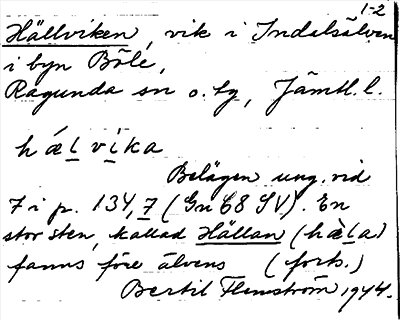 1-2
Hällviken, vik i Indalsälven
i byn Böle,
Ragunda sn o. hg, Jämtl. l.
hǽlvika
Belägen ung. vid
7 i p. 134,7 (Gn 68 SV). En
stor sten, kallad Hällan (hæ̀la)
fanns före älvens (forts.)
Bertil Flemström 1944.